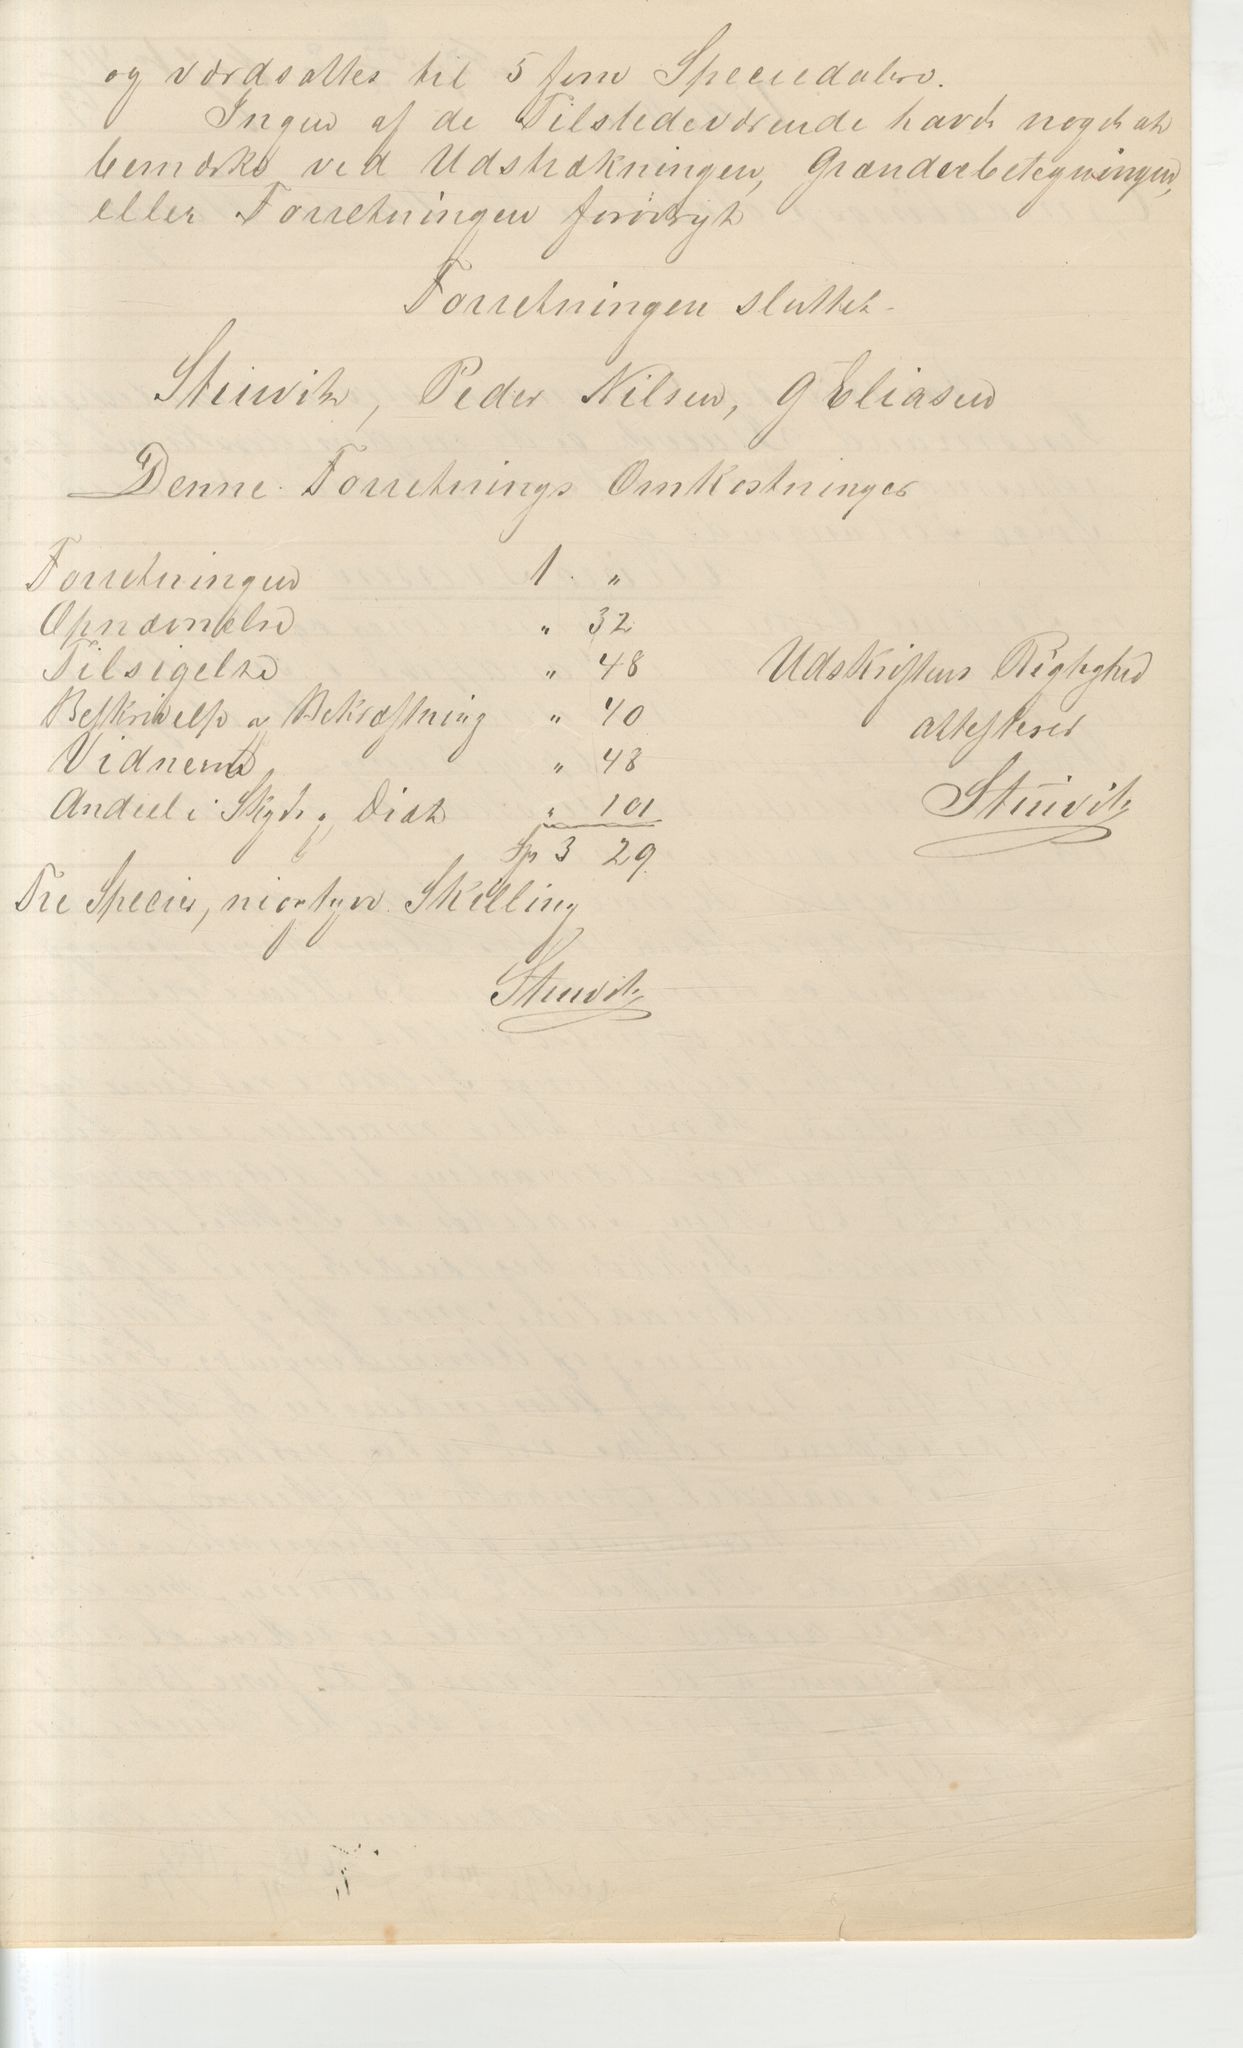 og værdsattes til 5 fem Speciedalere.
Ingen af de Tilstedeværende havde noget at
bemærke ved Udstrækningen, Grændsebetegningen,
eller Forretningen forøvrigt
Forretningen sluttet.
Stuwitz, Peder Nilsen, G Eliasen
Denne Forretnings Omkostninger
Forretningen 1 "
Opnævnelse " 32
Tilsigelse " 48
Beskrivelse og Bekræftning " 40
Vidnerne " 48
Andeel i Skyds og Diæt " 101
Sp 3 29
Tre Species, niogtyve Skilling
Stuwitz
Udskriftens Rigtighed
attesterer
Stuwitz